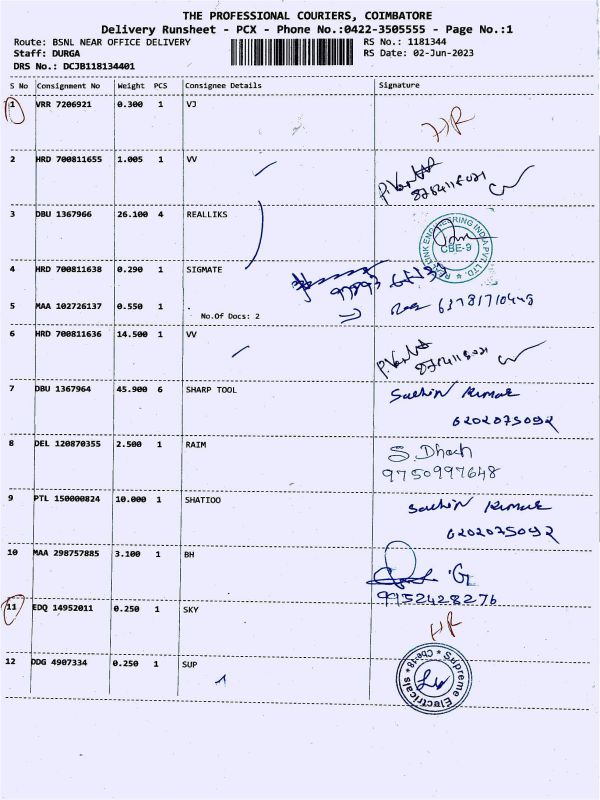 THE PROFESSIONAL COURIERS, COIMBATORE
Delivery Runsheet - PCX - Phone No.:0422-3505555 - Page No.:1
Route: BSNL NEAR OFFICE DELIVERY
RS No.: 1181344
Staff: DURGA
RS Date: 02-Jun-2023
DRS No.: DCJB118134401
S No Consignment No Weight PCS Consignee Details Signature
1 VRR 7206921 0.300 1 VJ
HR
2 HRD 700811655 1.005 1 VV
3 DBU 1367966 26.100 4 REALLIKS
LINK ENGINEERING INDIA PVT. LTD.
CBE-9
4 HRD 700811638 0.290 1 SIGMATE
5 MAA 102726137 0.550 1
No.Of Docs: 2
63781710448
6 HRD 700811636 14.500 1 VV
7 DBU 1367964 45.900 6 SHARP TOOL
Sachin Kumar
6202075092
8 DEL 120870355 2.500 1 RAIM
S. Dhach
9750997648
9 PTL 150000824 10.000 1 SHATIOO
Sachin Kumar
6202075092
10 MAA 298757885 3.100 1 BH
9952428276
11 EDQ 14952011 0.250 1 SKY
HR
12 DDG 4907334 0.250 1 SUP
Supreme Electricals * Cbe-18 *